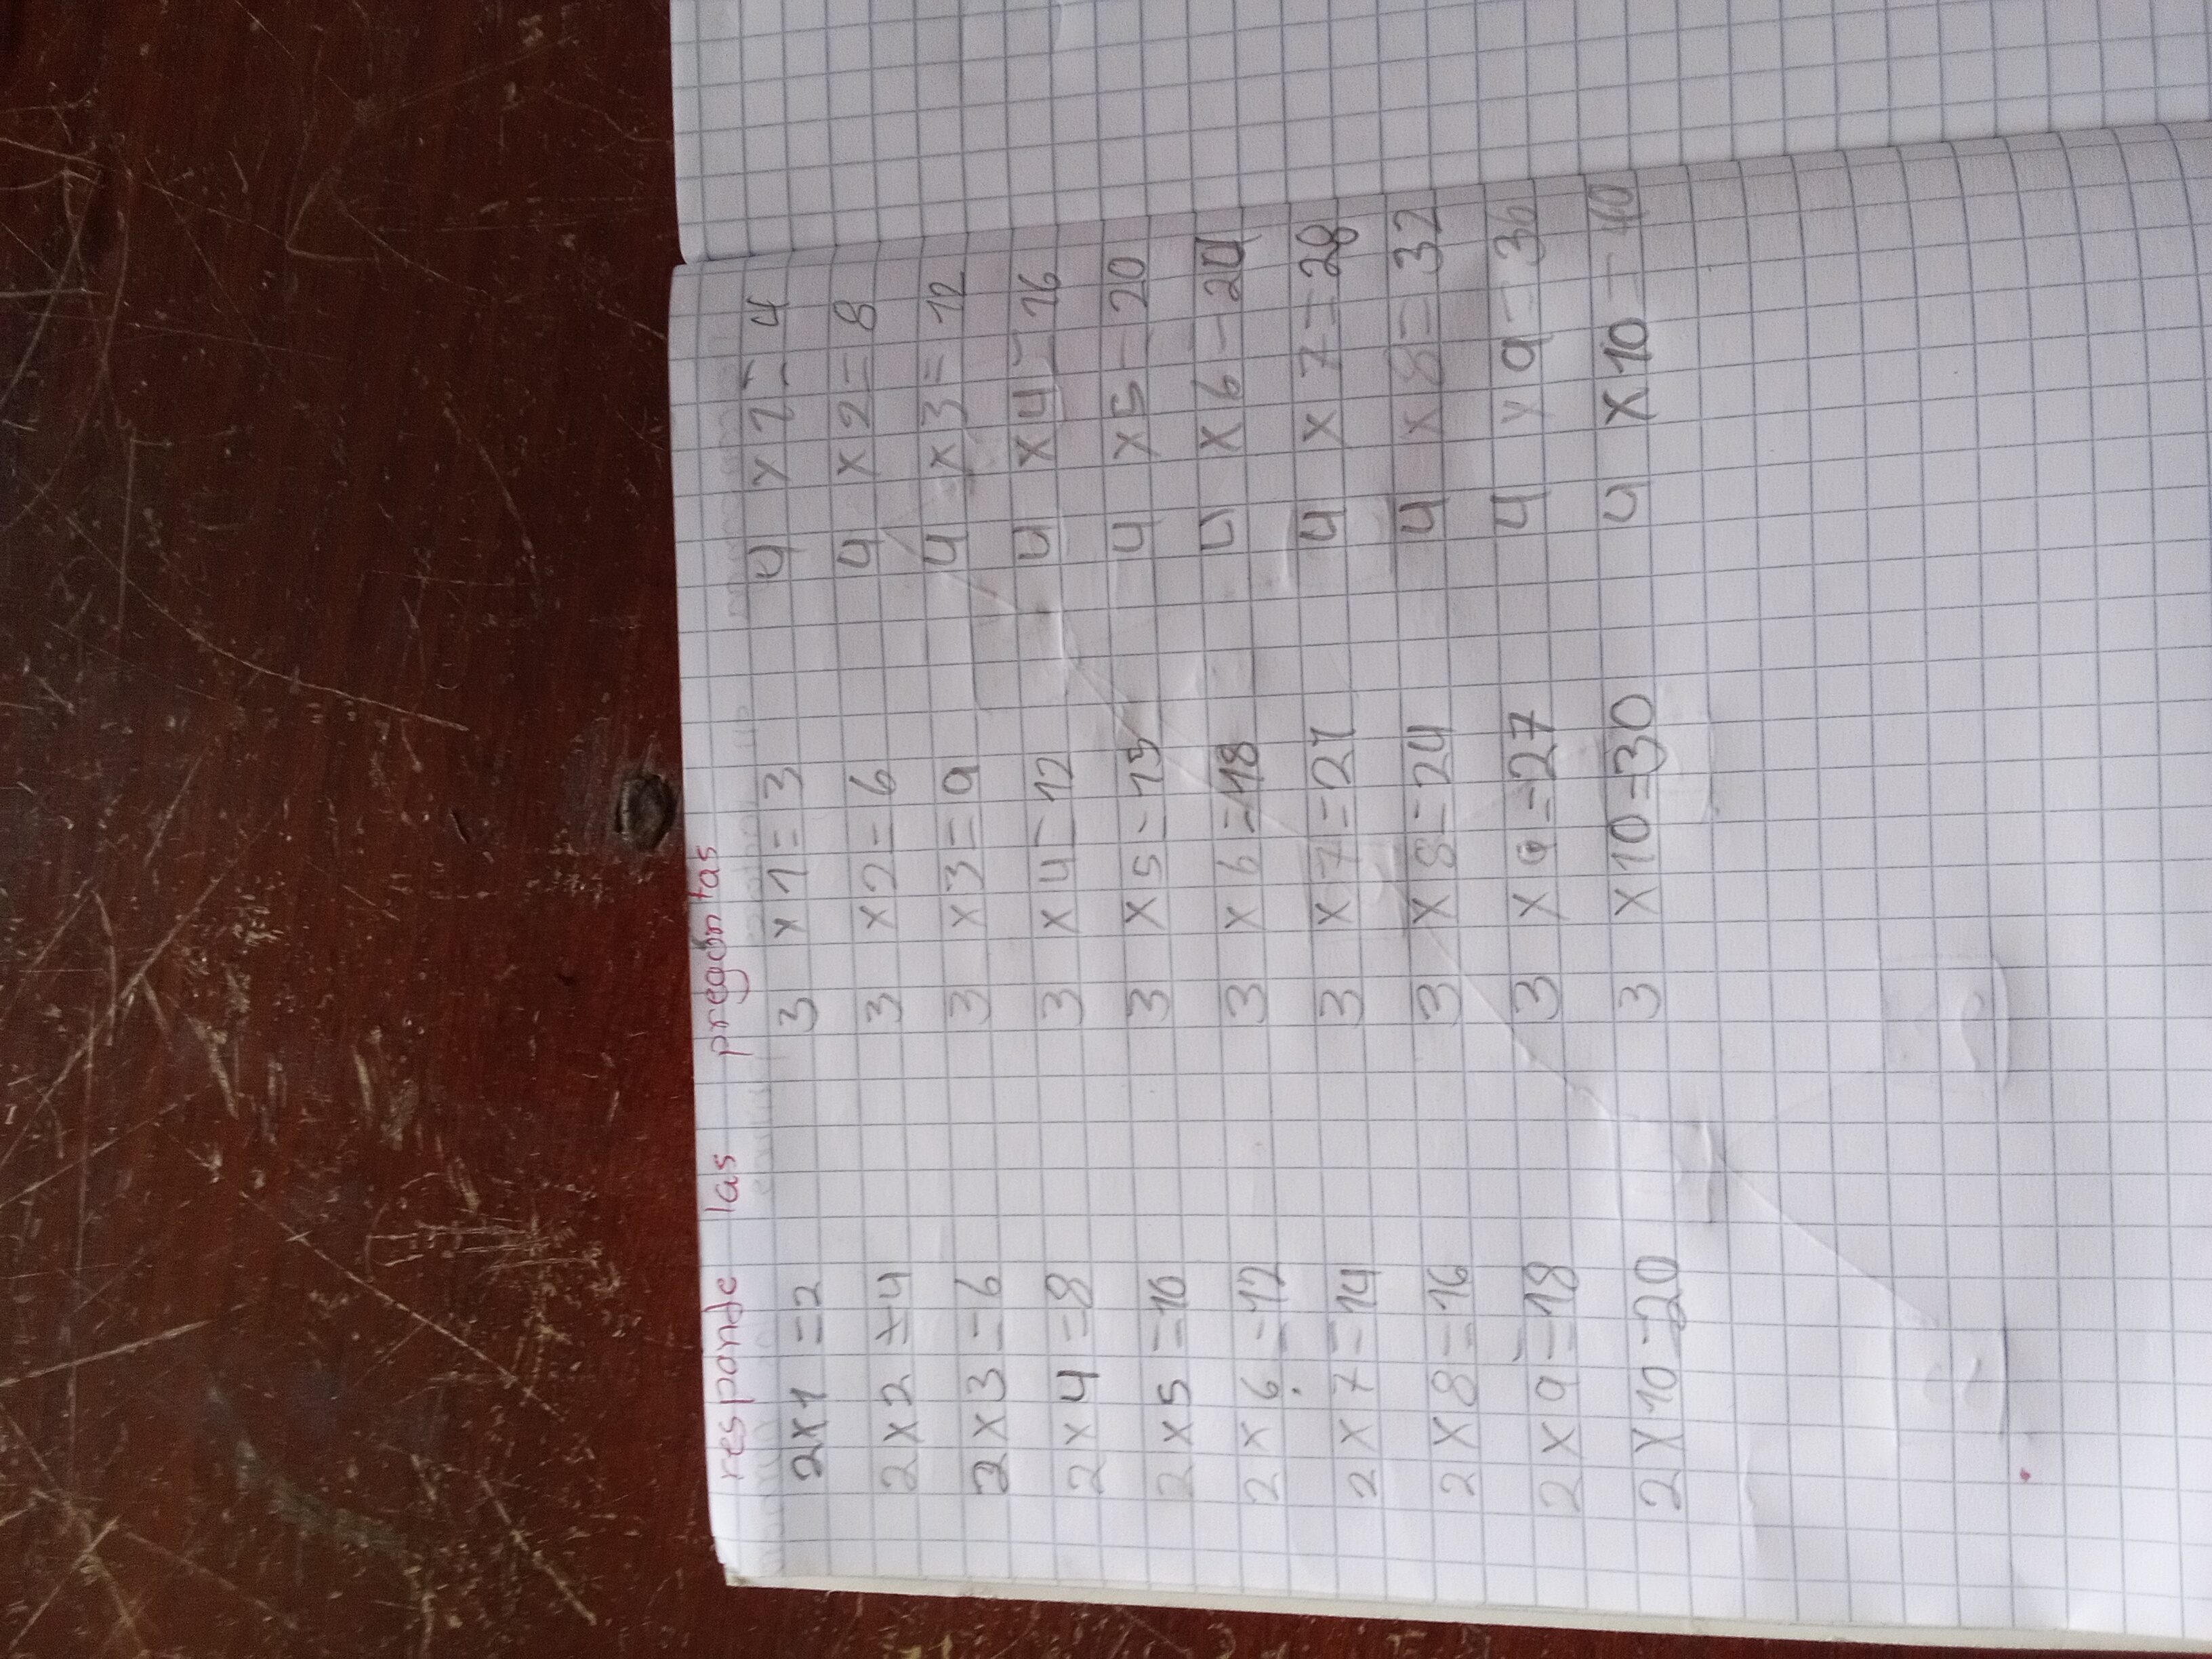 responde las pregontas
2x1=2 3 x1=3 4 x1=4
2x2=4 3 x2=6 4 x2=8
2x3=6 3 x3=9 4 x3=12
2x4=8 3 x4=12 4 x4=16
2x5=10 3 x5=15 4 x5=20
2x6=12 3 x6=18 4 x6=24
2x7=14 3 x7=21 4 x7=28
2x8=16 3 x8=24 4 x8=32
2x9=18 3 x9=27 4 x9=36
2x10=20 3 x10=30 4 x10=40